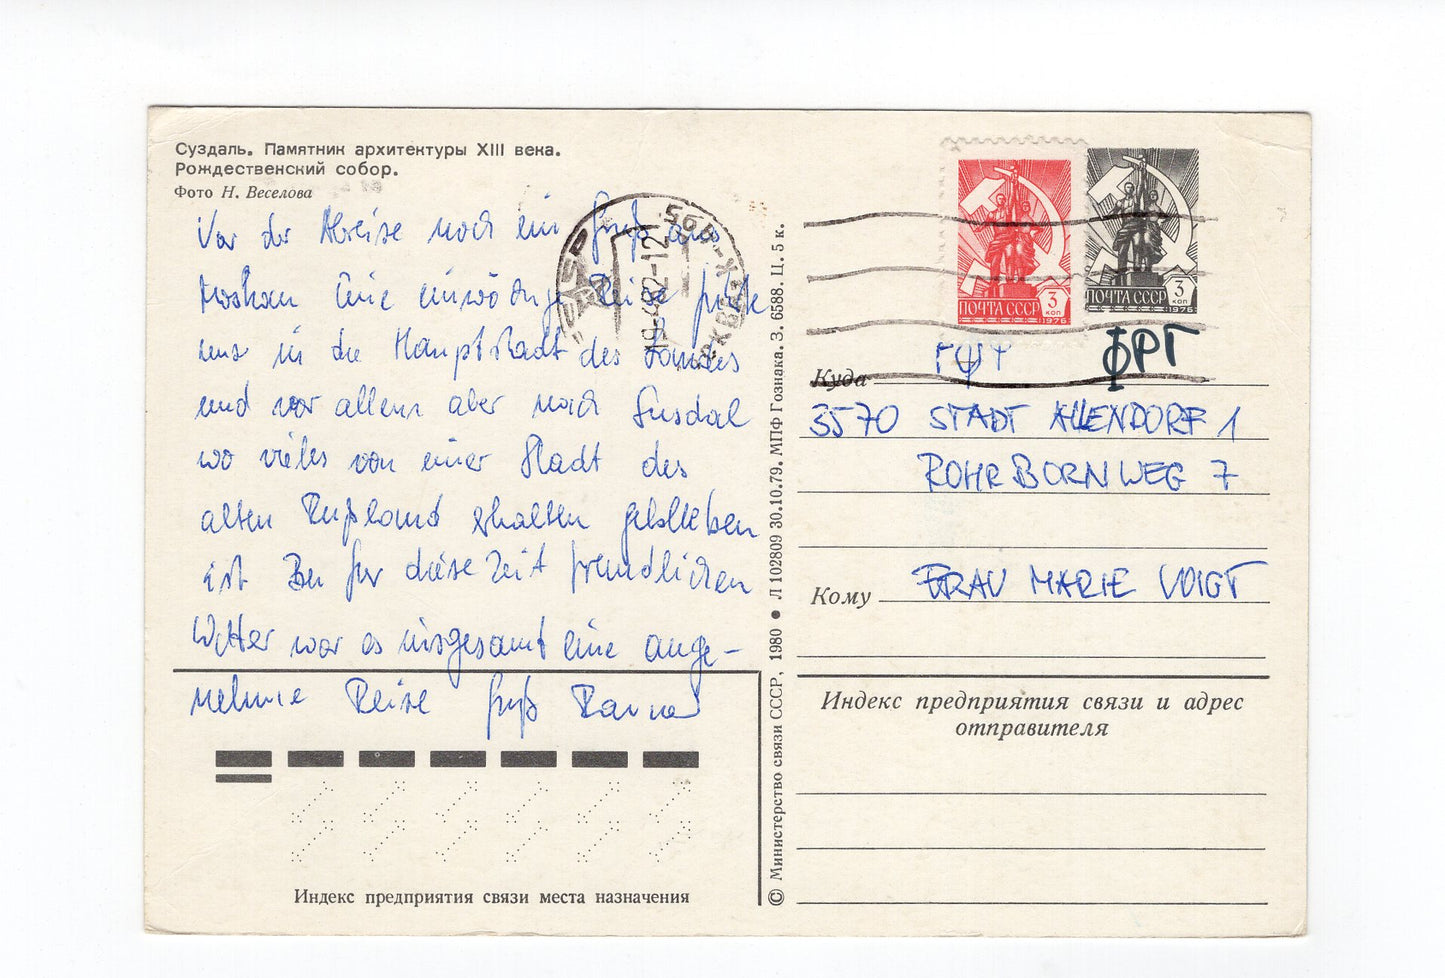 Суздаль. Памятник архитектуры XIII века.
Рождественский собор.
Фото Н. Веселова
Vor der Abreise noch ein Gruß aus
Moskau Eine einwöchige Reise führte
uns in die Hauptstadt des Landes
und vor allem aber nach Susdal
wo vieles von einer Stadt des
alten Rußland erhalten geblieben
ist Bei für diese Zeit freundlichen
Wetter war es insgesamt eine ange-
nehme Reise Gruß
19-4-82-12
ПОЧТА СССР 3 КОП 1976
ПОЧТА СССР 3 КОП 1976
ФРГ
Куда
3570 STADT ALLENDORF 1
ROHRBORNWEG 7
Кому FRAU MARIE VOIGT
Индекс предприятия связи и адрес
отправителя
Индекс предприятия связи места назначения
© Министерство связи СССР, 1980 • Л 102809 30.10.79. МПФ Гознака. З. 6588. Ц. 5 к.